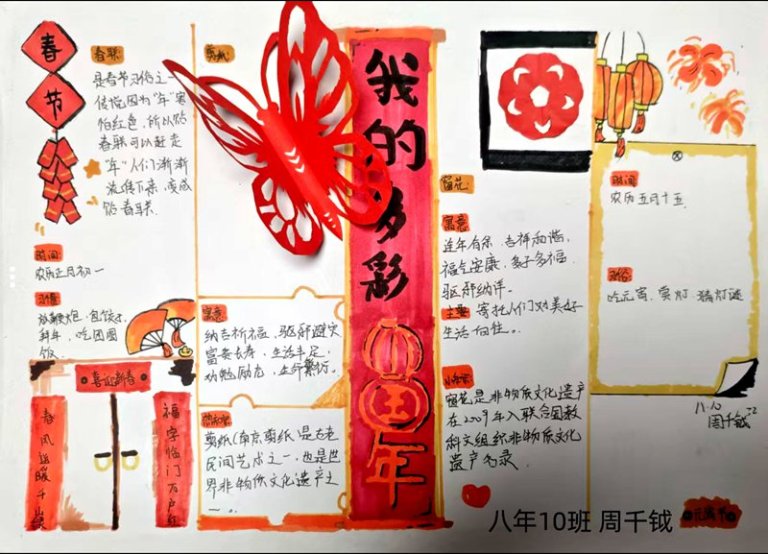 春
节
春联
是春节习俗之一
传说因为“年”害
怕红色,所以贴
春联可以赶走
“年”人们渐渐
流传下来,变成
贴春联
时间:
农历正月初一
习俗
放鞭炮,包饺子,
拜年,吃团圆
饭。
喜迎新春
春风送暖千山
福字临门万户
剪纸
寓意
纳吉祈福、驱邪避灾
富贵长寿、生活丰足、
劝勉励志、生衍繁衍。
剪纸(南京剪纸)是古老
民间艺术之一,也是世
界非物质文化遗产之
一。
我的多彩
中国年
窗花:
寓意
连年有余、吉祥和谐,
福气安康、多子多福
驱邪纳祥。
主要 寄托人们对美好
生活向往。
窗花是非物质文化遗产
在2009年入联合国教
科文组织非物质文化
遗产名录。
时间:
农历五月十五
习俗:
吃元宵、赏灯、猜灯谜
八.10
周千钺
元宵节
八年10班 周千钺